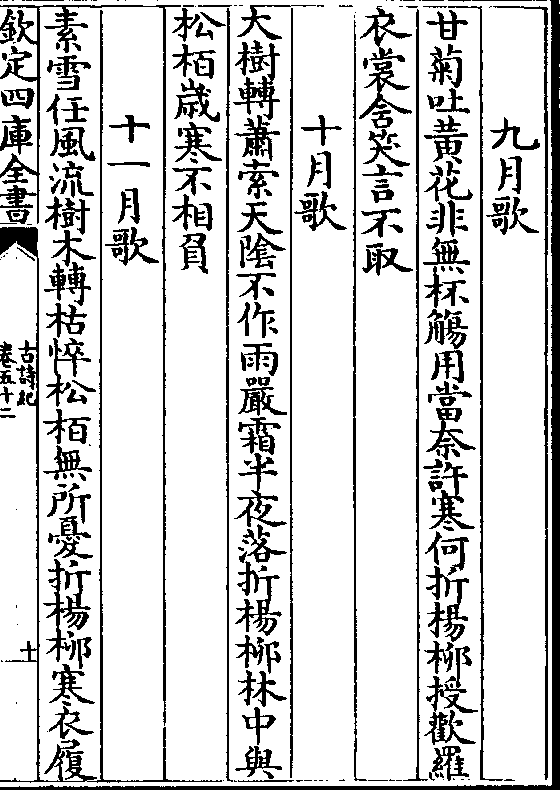 九月歌
甘菊吐黄花非無杯觴用當奈許寒何折楊柳授歡羅
衣裳含笑言不取
十月歌
大樹轉蕭索天陰不作雨嚴霜半夜落折楊柳林中與
松栢歲寒不相負
十一月歌
素雪任風流樹木轉枯悴松栢無所憂折楊柳寒衣履
欽定四庫全書
古詩紀
卷五十二
十